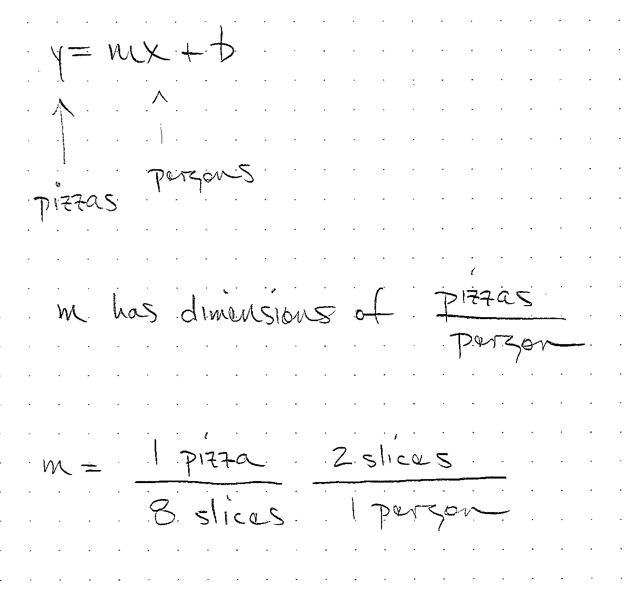 y = mx + b
pizzas persons
m has dimensions of pizzas / person
m = 1 pizza / 8 slices 2 slices / 1 person